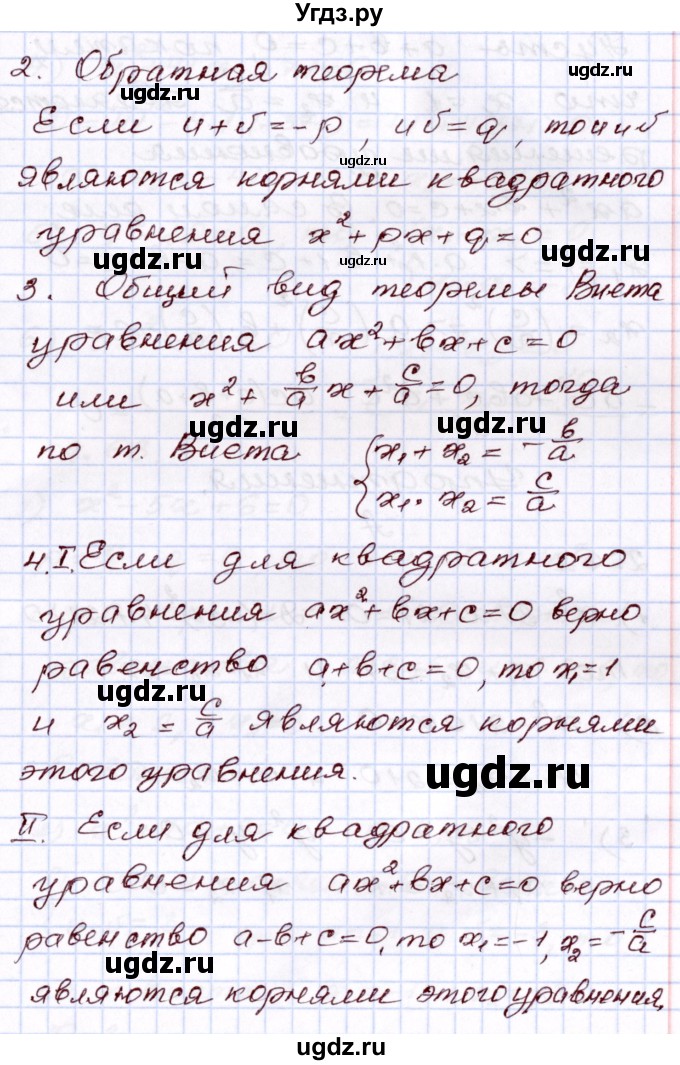 Угдз.ру
2. Обратная теорема
ugdz.ru
Если u+б=-p, uб=q, то u и б
ugdz.ru
являются корнями квадратного
уравнения x²+px+q=0
ugdz.ru ugdz.ru
3. Общий вид теоремы Виета
уравнения ax²+bx+c=0
или x²+b/a x+c/a=0, тогда
ugdz.ru
по т. Виета { x₁+x₂=-b/a
ugdz.ru
x₁·x₂=c/a
4.I. Если для квадратного
ugdz.ru
уравнения ax²+bx+c=0 верно
равенство a+b+c=0, то x₁=1
ugdz.ru
и x₂=c/a являются корнями
этого уравнения. ugdz.ru
II. Если для квадратного
ugdz.ru
уравнения ax²+bx+c=0 верно
равенство a-b+c=0, то x₁=-1, x₂=-c/a
ugdz.ru
являются корнями этого уравнения,
ugdz.ru